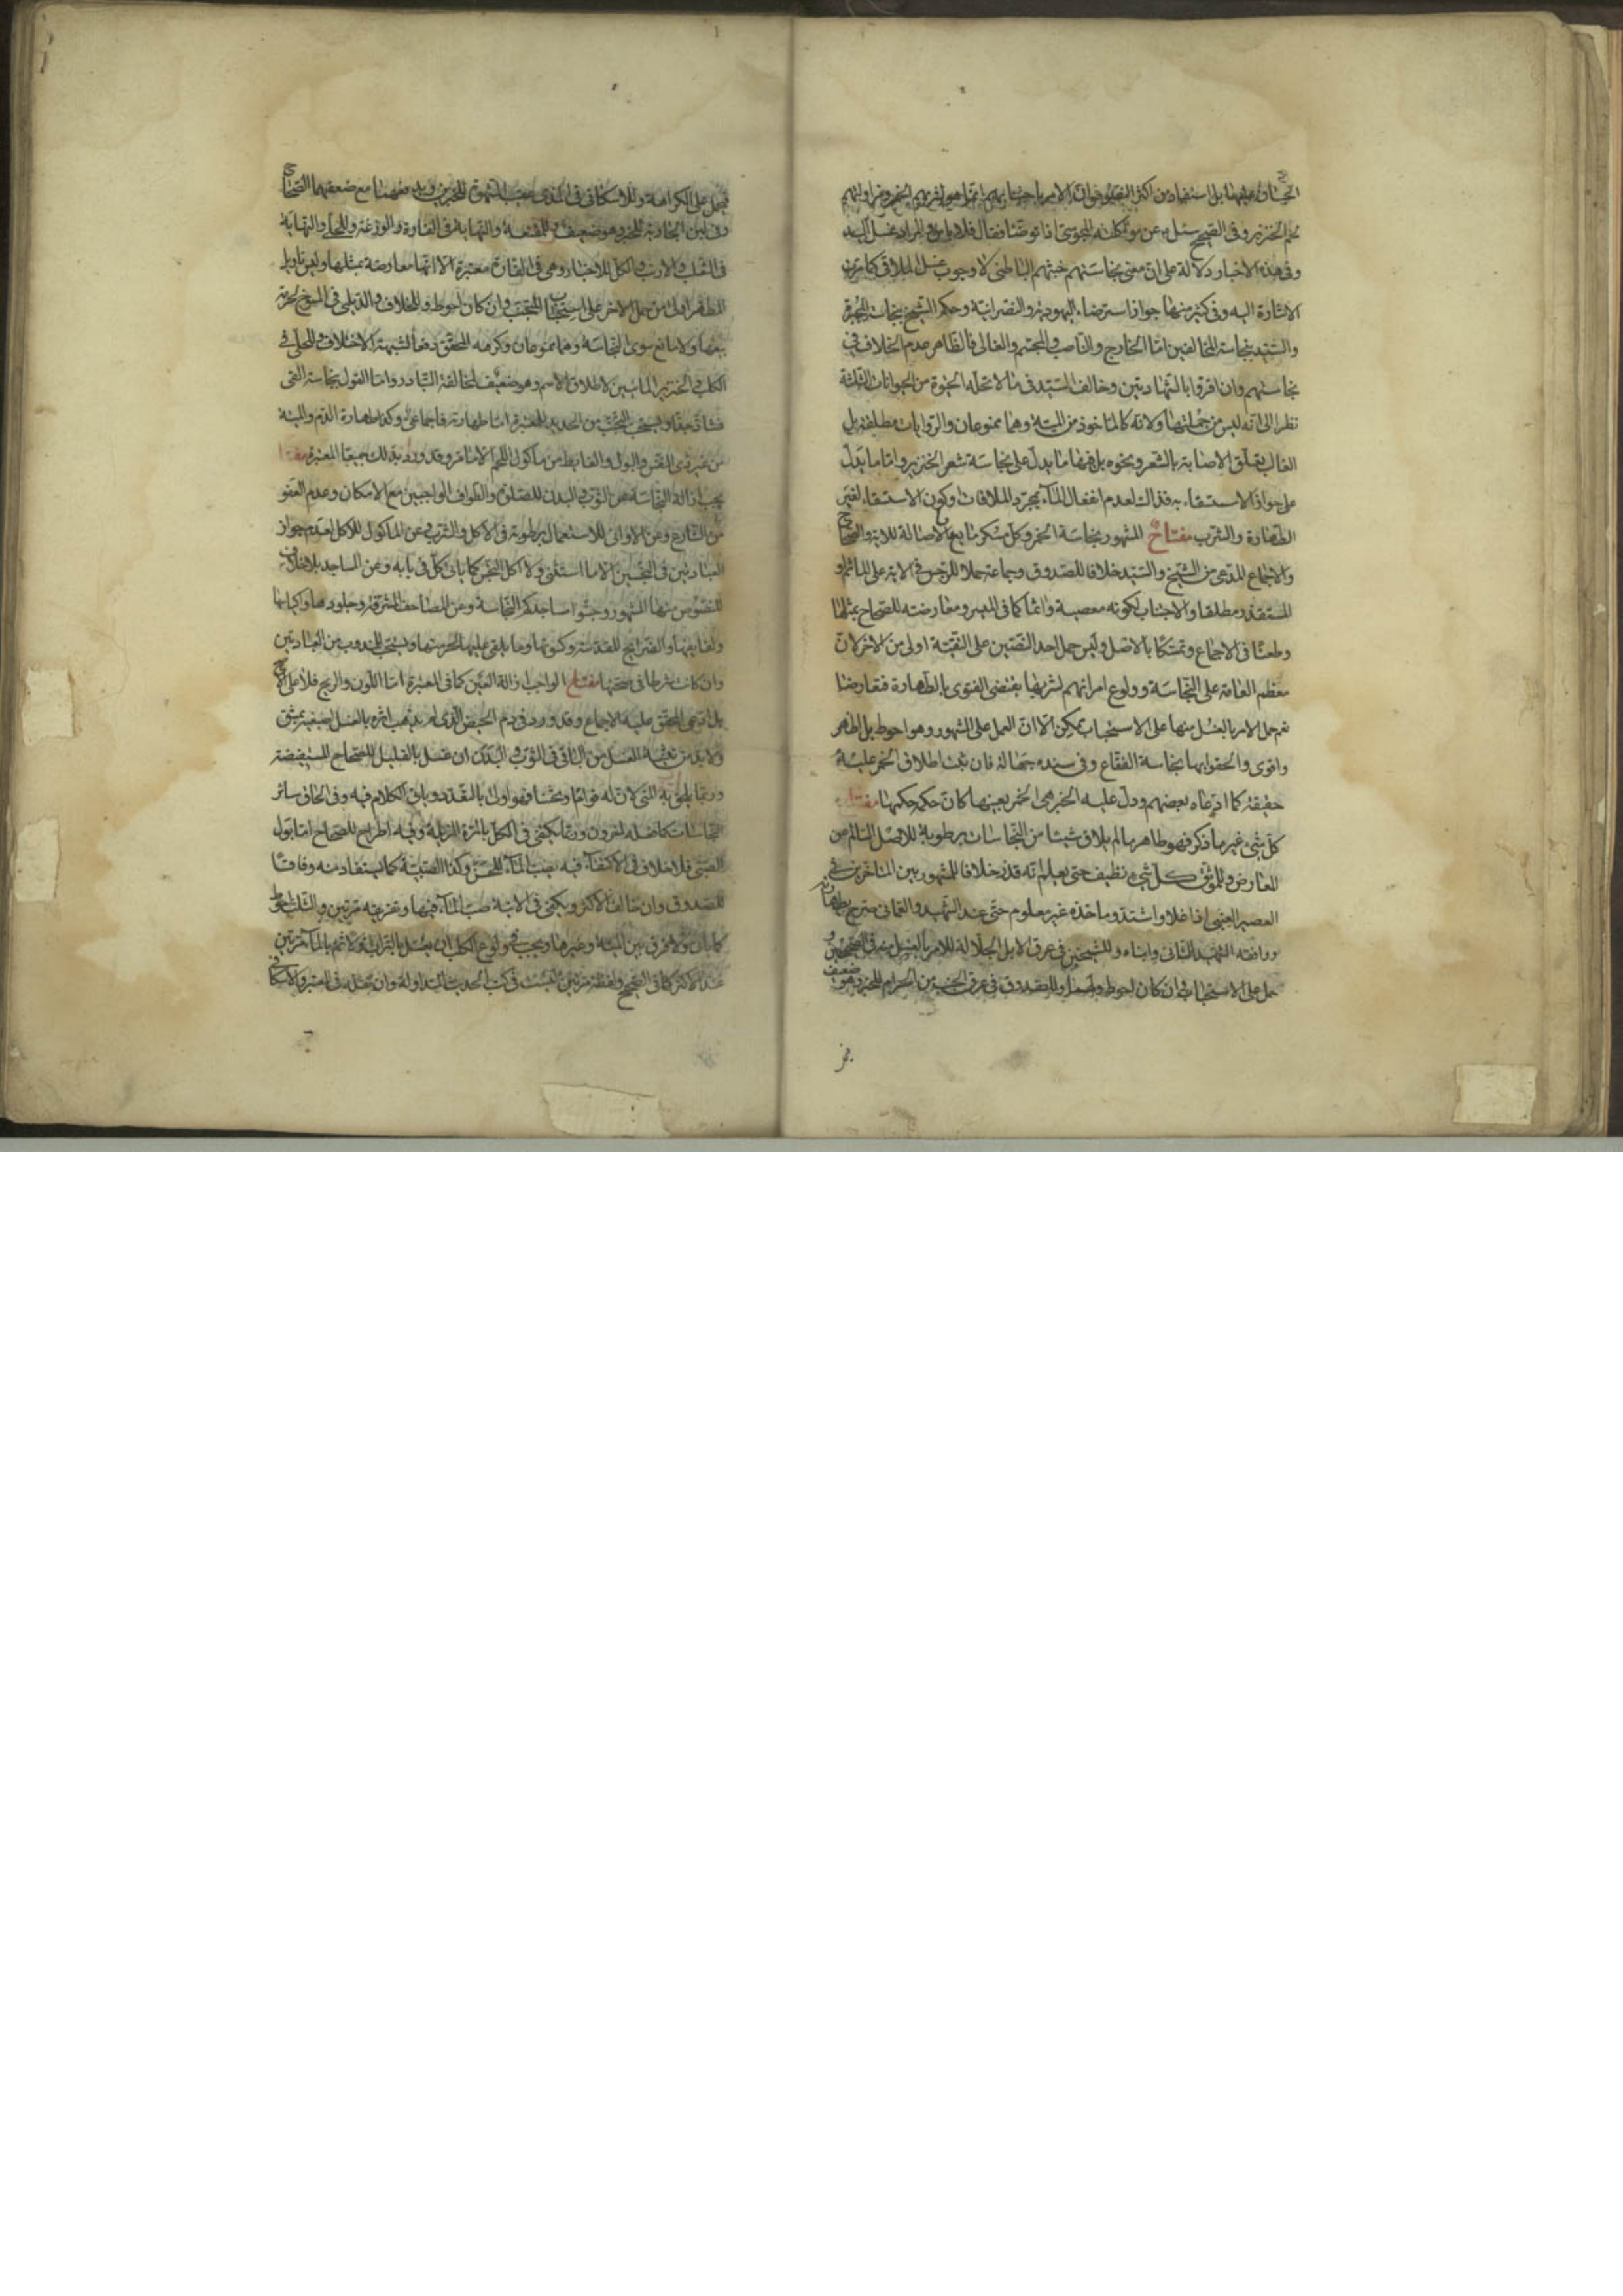 لحم الخنزير وفى الصحيح سئل عن مؤاكلة المجوسى اذا توضا فقال فلا باس والمراد غسل اليد
وفى هذه الاخبار دلالة على ان معنى نجاستهم خبثهم الباطنى لا وجوب غسل الملاقى كما مرت
الاشارة اليه وفى كثير منها جواز استرضاء اليهودية والنصرانية وحكم الشيخ بنجاسة المجبرة
والسيد بنجاسة المخالفين اما الخارج والناصب والمجسم والغالى فالظاهر عدم الخلاف فى
نجاستهم وان اقروا بالشهادتين وخالف السيد فى ما لا تحله الحيوة من الحيوانات الثلثة
نظرا الى انه ليس من جملتها ولانه كالماخوذ من الميتة وهما ممنوعان والروايات مطلقة بل
الغالب تعلق الاصابة بالشعر ونحوه بل فيها ما يدل على نجاسة شعر الخنزير واما ما يدل
على جواز الاستقاء به فذلك لعدم انفعال الماء بمجرد الملاقات او كون الاستقاء لغير
الطهارة والشرب مفتاح المشهور نجاسة الخمر وكل مسكر مايع بالاصالة للاية والصحاح
والاجماع المدعى من الشيخ والسيد خلافا للصدوق وجماعة حملا للرجس فى الاية على الماثم او
المستقذر مطلقا والاجتناب لكونه معصية واثما كما فى الميسر ومعارضته للصحاح بمثلها
وطعنا فى الاجماع وتمسكا بالاصل وليس حمل احد النصين على التقية اولى من الاخر لان
معظم العامة على النجاسة وولوع امرائهم بشربها يقتضى الفتوى بالطهارة فتعارضا
نعم حمل الامر بالغسل منها على الاستحباب ممكن الا ان العمل على المشهور وهو احوط بل اظهر
واقوى والحقوا بها نجاسة الفقاع وفى سنده جهالة فان ثبت اطلاق الخمر عليه
حقيقة كما ادعاه بعضهم ودل عليه الخبر هى الخمر بعينها كان حكمه حكمها مفتاح
كل شىء غير ما ذكر فهو طاهر ما لم يلاق شيئا من النجاسات برطوبة للاصل السالم من
المعارض وللموثق كل شىء نظيف حتى يعلم انه قذر خلافا للمشهور بين المتاخرين فى
العصير العنبى اذا غلا واشتد وماخذه غير معلوم حتى عند الشهيد والعمانى صرح بطهارته
ووافقه الشهيد الثانى وابناه وللشيخين فى عرق الابل الجلالة للامر بالغسل منه فى الصحيحين و
حمل على الاستحباب وان كان احوط ولهما وللصدوق فى عرق الجنب من الحرام للخبر وهو ضعيف
فى الثعلب والارنب والكل للاخبار وهى فى الفارة معتبرة الا انها معارضة بمثلها وليس تاويل
المطهر اولى من حمل الاخر على استحباب التجنب وان كان احوط وللخلاف والديلمى فى المسوخ لحرمة
بيعها ولا مانع سوى النجاسة وهما ممنوعان وكرهه المحقق دفعا لشبهة الاختلاف وللحلى فى
الكلب والخنزير المائيين لاطلاق الاسم وهو ضعيف لمخالفة التبادر واما القول بنجاسة القى
فشاذ جدا ويستحب التجنب من الحديد للمعتبرة اما طهارته فاجماعى وكذا طهارة الدم والميتة
من غير ذى النفس والبول والغايط من ماكول اللحم الا ما مر وقد ورد بذلك جميعا المعتبرة مفتاح
يجب ازالة النجاسة عن الثوب والبدن للصلوة والطواف الواجبين مع الامكان وعدم العفو
من الشارع وعن الاوانى للاستعمال برطوبة فى الاكل والشرب وعن الماكول للاكل لعدم جواز
العبادتين فى النجسين الا ما استثنى ولا اكل النجس كما ياتى كل فى بابه وعن المساجد بلا خلاف
للنصوص منها المشهور وجنبوا مساجدكم النجاسة وعن المصاحف المشرفة وجلودها واكياسها
وان كانت شرطا فى صحتها مفتاح الواجب ازالة العين كما فى المعتبرة اما اللون والريح فلا على الاصح
بل ادعى المحقق عليه الاجماع وقد ورد فى دم الحيض الذى لم يذهب اثره بالغسل اصبغيه بمشق
ولا بد من تثنية الغسل من البول فى الثوب والبدن ان غسل بالقليل للصحاح المستفيضة
وربما يلحق به المنى لان له قواما وثخنا فهو اولى بالتعدد وياتى الكلام فيه وفى الحاق ساير
النجاسات كما فعله اخرون وربما يكتفى فى الكل بالمرة المزيلة وفيه اطراح للصحاح اما بول
الصبى فلا خلاف فى الاكتفاء فيه بصب الماء للحسن وكذا الصبية كما يستفاد منه وفاقا
للصدوق وان خالف الاكثر ويكفى فى الانية صب الماء فيها وتفريغه مرتين والثلث احوط
كما ياتى ولا فرق بين الميتة وغيرها ويجب فى ولوغ الكلب ان يغسل بالتراب اولا ثم بالماء مرتين
عند الاكثر كما فى الصحيح ولفظة مرتين ليست فى كتب الحديث المتداولة وان نقله فى المعتبر والاسكافى